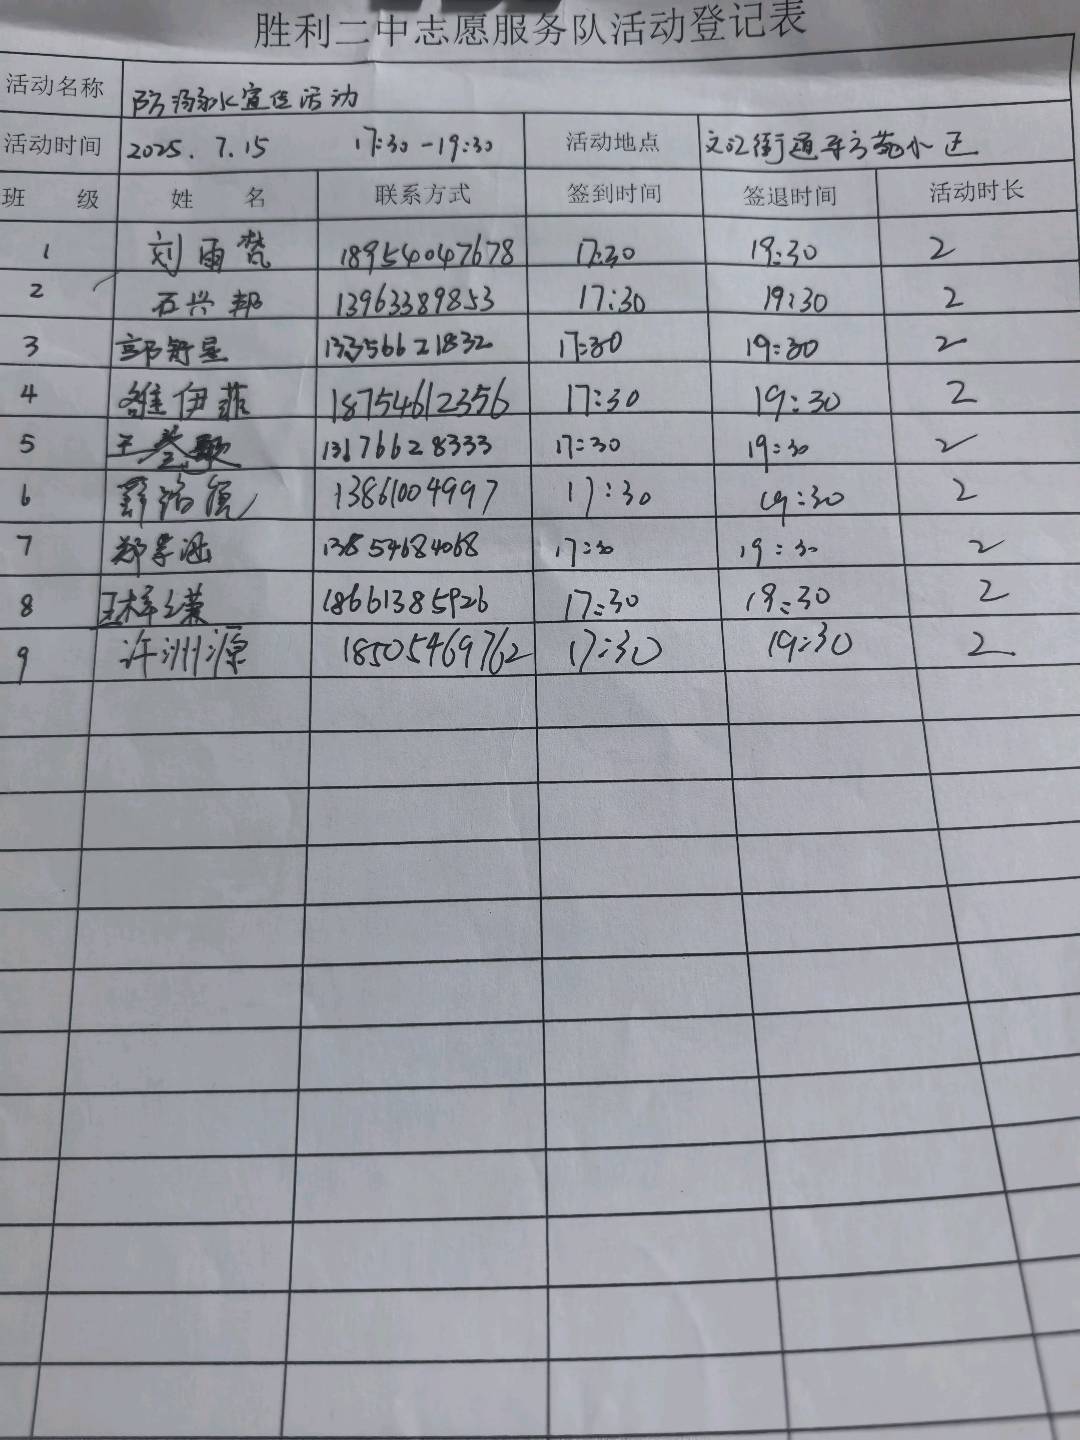 胜利二中志愿服务队活动登记表
活动名称 防溺水宣传活动
活动时间 2025. 7.15 17:30-19:30 活动地点 文汇街道平方苑小区
班 级 姓 名 联系方式 签到时间 签退时间 活动时长
1 刘雨梵 18954047678 17:30 19:30 2
2 石兴邦 13963389853 17:30 19:30 2
3 郭舒星 13356621832 17:30 19:30 2
4 雒伊菲 18754612356 17:30 19:30 2
5 王 13176628333 17:30 19:30 2
6 13861004997 17:30 19:30 2
7 郑 13854684068 17:30 19:30 2
8 王梓 18661385926 17:30 19:30 2
9 许洲源 18505469762 17:30 19:30 2